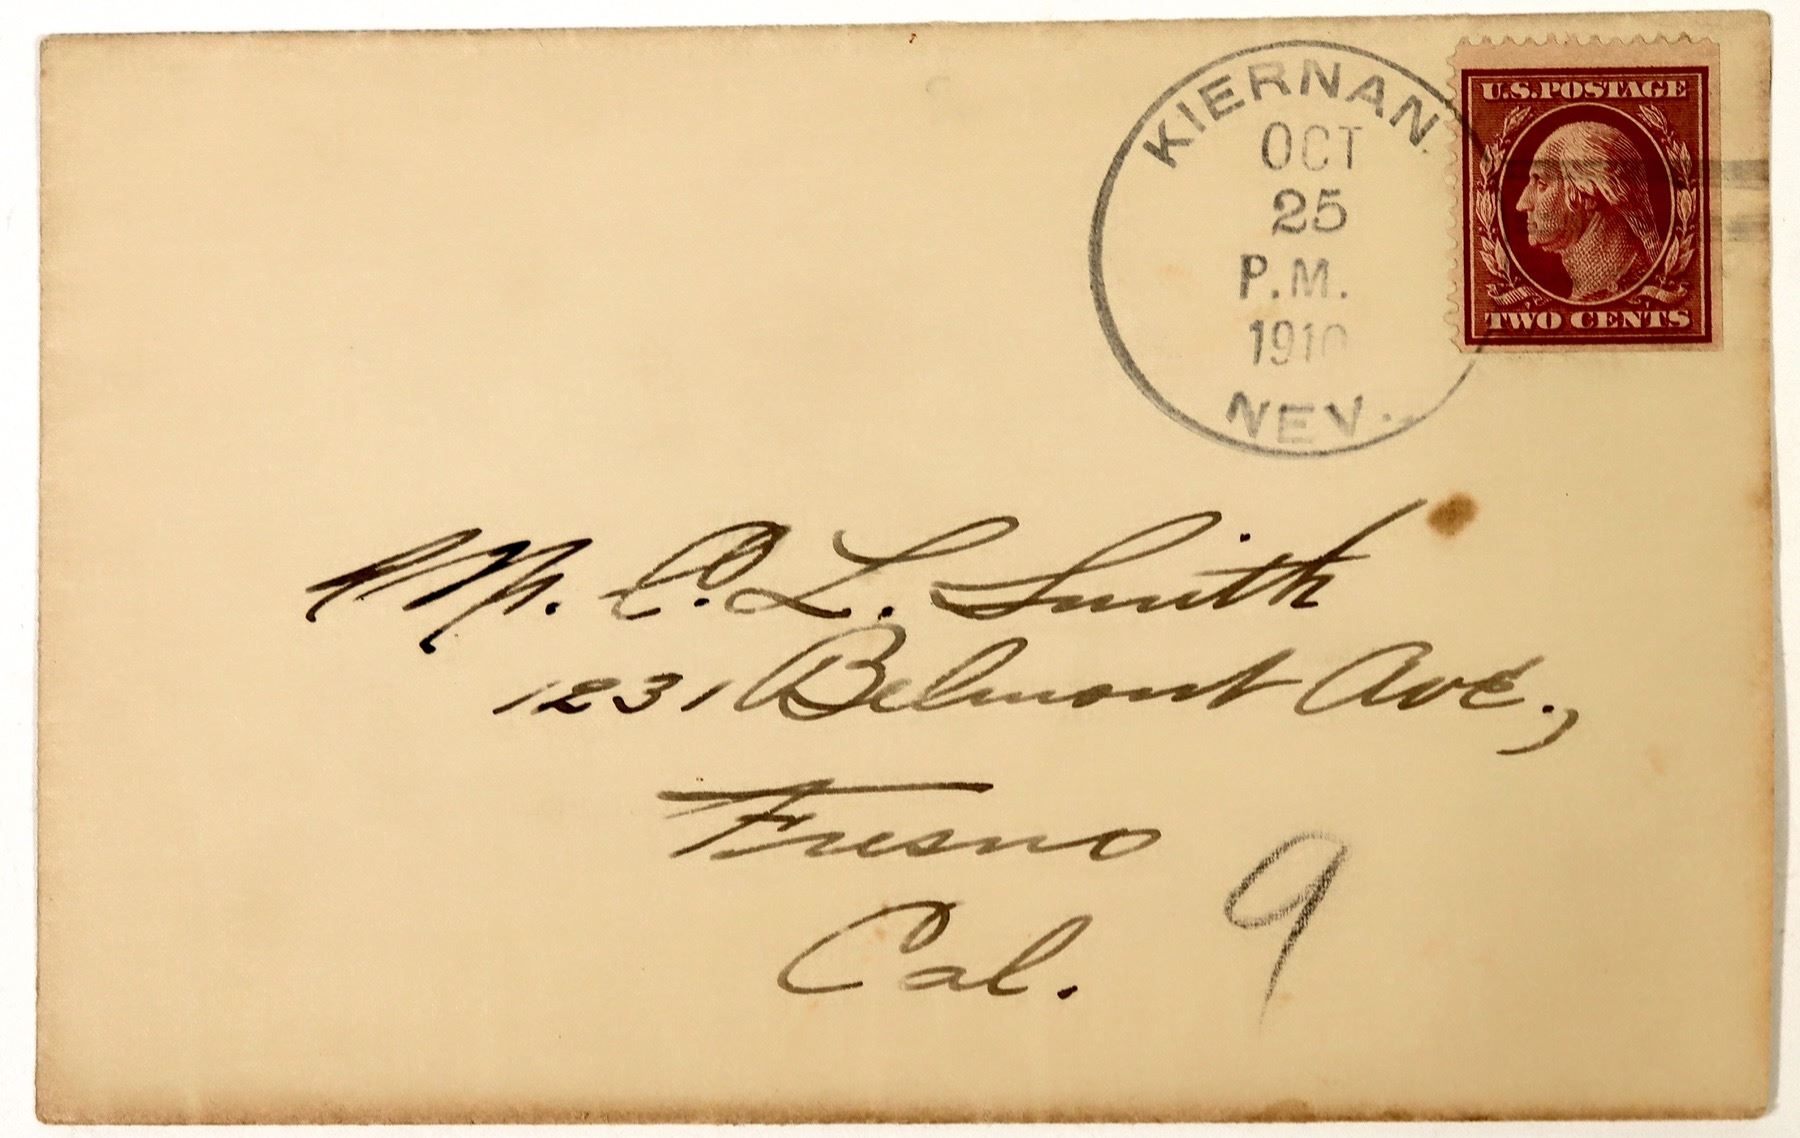 KIERNAN.
OCT
25
P.M.
1910
NEV.
U.S.POSTAGE
TWO CENTS
Mr. C. L. Smith
1231 Belmont Ave.,
Fresno
Cal.
9